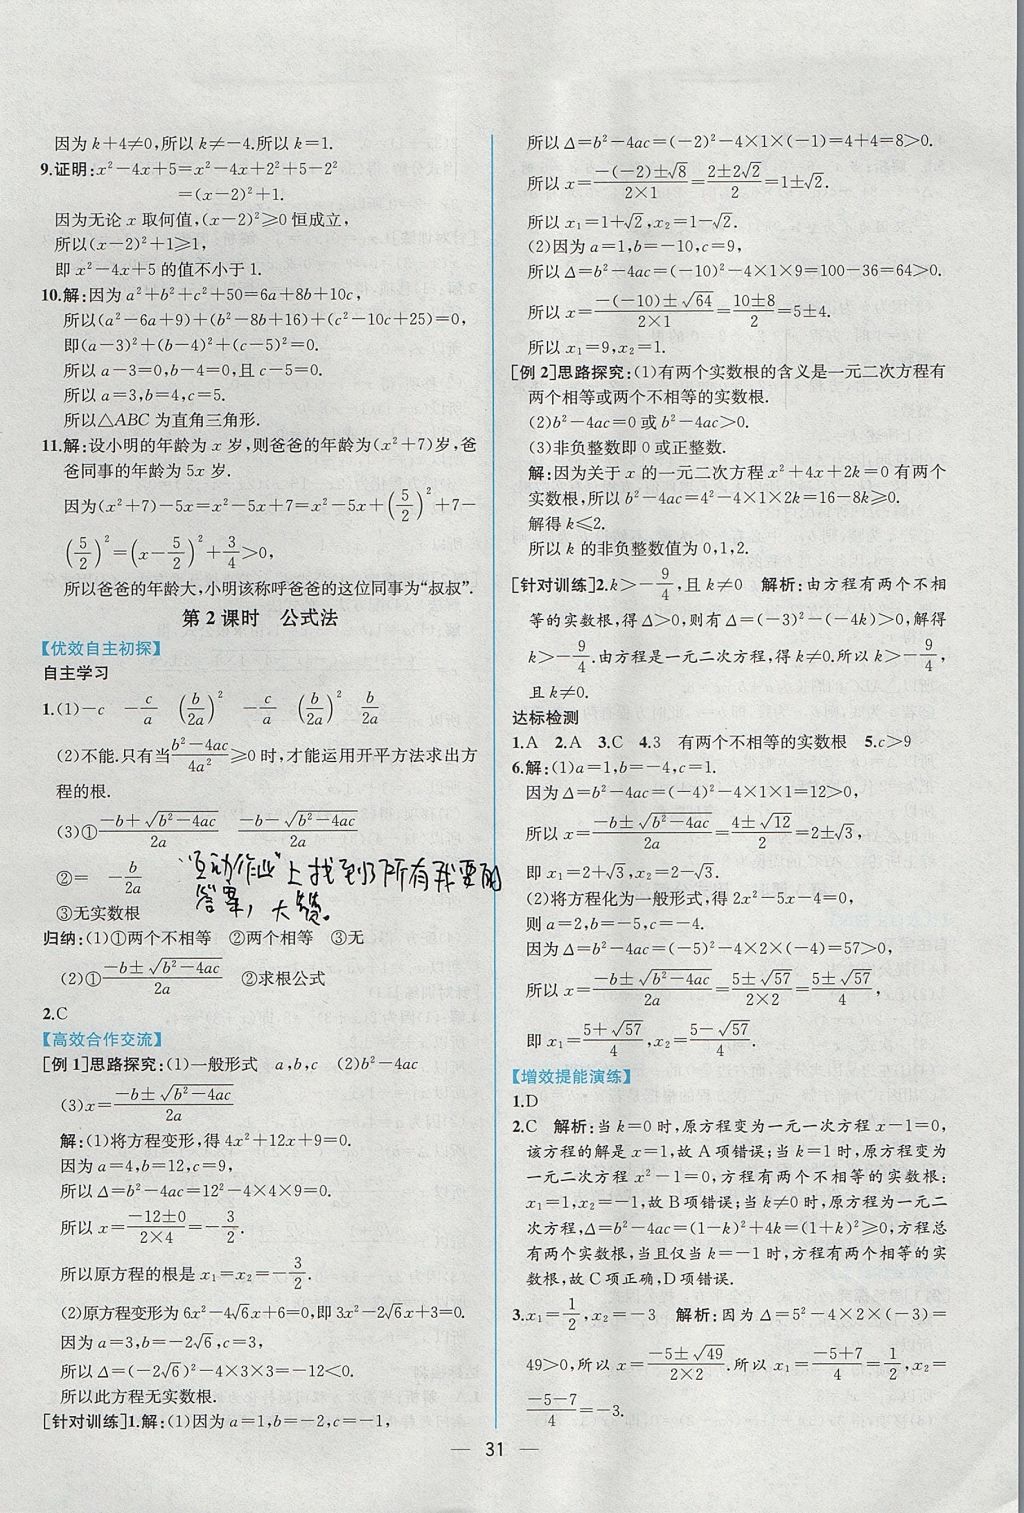 因为k+4≠0,所以k≠-4.所以k=1.
9.证明:x²-4x+5=x²-4x+2²+5-2²
=(x-2)²+1.
因为无论x取何值,(x-2)²≥0恒成立,
所以(x-2)²+1≥1,
即x²-4x+5的值不小于1.
10.解:因为a²+b²+c²+50=6a+8b+10c,
所以(a²-6a+9)+(b²-8b+16)+(c²-10c+25)=0,
即(a-3)²+(b-4)²+(c-5)²=0.
所以a-3=0,b-4=0,且c-5=0.
所以a=3,b=4,c=5.
所以△ABC为直角三角形.
11.解:设小明的年龄为x岁,则爸爸的年龄为(x²+7)岁,爸
爸同事的年龄为5x岁.
因为(x²+7)-5x=x²-5x+7=x²-5x+(5/2)²+7-
(5/2)²=(x-5/2)²+3/4>0,
所以爸爸的年龄大,小明该称呼爸爸的这位同事为“叔叔”.
第2课时 公式法
【优效自主初探】
自主学习
1.(1)-c -c/a (b/2a)² -c/a (b/2a)² b/2a
(2)不能.只有当(b²-4ac)/4a²≥0时,才能运用开平方法求出方
程的根.
(3)①(-b+√(b²-4ac))/2a (-b-√(b²-4ac))/2a
②= -b/2a
③无实数根
“互动作业”上找到了所有我要的
答案,大赞。
归纳:(1)①两个不相等 ②两个相等 ③无
(2)①(-b±√(b²-4ac))/2a ②求根公式
2.C
【高效合作交流】
[例1]思路探究:(1)一般形式 a,b,c (2)b²-4ac
(3)x=(-b±√(b²-4ac))/2a
解:(1)将方程变形,得4x²+12x+9=0.
因为a=4,b=12,c=9,
所以Δ=b²-4ac=12²-4×4×9=0.
所以x=(-12±0)/(2×4)=-3/2.
所以原方程的根是x₁=x₂=-3/2.
(2)原方程变形为6x²-4√6x+6=0,即3x²-2√6x+3=0.
因为a=3,b=-2√6,c=3,
所以Δ=(-2√6)²-4×3×3=-12<0.
所以此方程无实数根.
[针对训练]1.解:(1)因为a=1,b=-2,c=-1,
所以Δ=b²-4ac=(-2)²-4×1×(-1)=4+4=8>0.
所以x=(-(-2)±√8)/(2×1)=(2±2√2)/2=1±√2.
所以x₁=1+√2,x₂=1-√2.
(2)因为a=1,b=-10,c=9,
所以Δ=b²-4ac=(-10)²-4×1×9=100-36=64>0.
所以x=(-(-10)±√64)/(2×1)=(10±8)/2=5±4.
所以x₁=9,x₂=1.
[例2]思路探究:(1)有两个实数根的含义是一元二次方程有
两个相等或两个不相等的实数根.
(2)b²-4ac=0或b²-4ac>0.
(3)非负整数即0或正整数.
解:因为关于x的一元二次方程x²+4x+2k=0有两个
实数根,所以b²-4ac=4²-4×1×2k=16-8k≥0.
解得k≤2.
所以k的非负整数值为0,1,2.
[针对训练]2.k>-9/4,且k≠0 解析:由方程有两个不相
等的实数根,得Δ>0,则有Δ=(-3)²-(-4k)>0,解得
k>-9/4.由方程是一元二次方程,得k≠0.所以k>-9/4,
且k≠0.
达标检测
1.A 2.A 3.C 4.3 有两个不相等的实数根 5.c>9
6.解:(1)a=1,b=-4,c=1.
因为Δ=b²-4ac=(-4)²-4×1×1=12>0,
所以x=(-b±√(b²-4ac))/2a=(4±√12)/2=2±√3,
即x₁=2+√3,x₂=2-√3.
(2)将方程化为一般形式,得2x²-5x-4=0,
则a=2,b=-5,c=-4.
因为Δ=b²-4ac=(-5)²-4×2×(-4)=57>0,
所以x=(-b±√(b²-4ac))/2a=(5±√57)/(2×2)=(5±√57)/4,
即x₁=(5+√57)/4,x₂=(5-√57)/4.
【增效提能演练】
1.D
2.C 解析:当k=0时,原方程变为一元一次方程x-1=0,
该方程的解是x=1,故A项错误;当k=1时,原方程变为
一元二次方程x²-1=0,方程有两个不相等的实数根:
x₁=1,x₂=-1,故B项错误;当k≠0时,原方程为一元二
次方程,Δ=b²-4ac=(1-k)²+4k=(1+k)²≥0,方程总
有两个实数根,当且仅当k=-1时,方程有两个相等的实
数根,故C项正确,D项错误.
3.x₁=1/2,x₂=-3 解析:因为Δ=5²-4×2×(-3)=
49>0,所以x=(-5±√49)/(2×2).所以x₁=(-5+7)/4=1/2,x₂=
(-5-7)/4=-3.
— 31 —